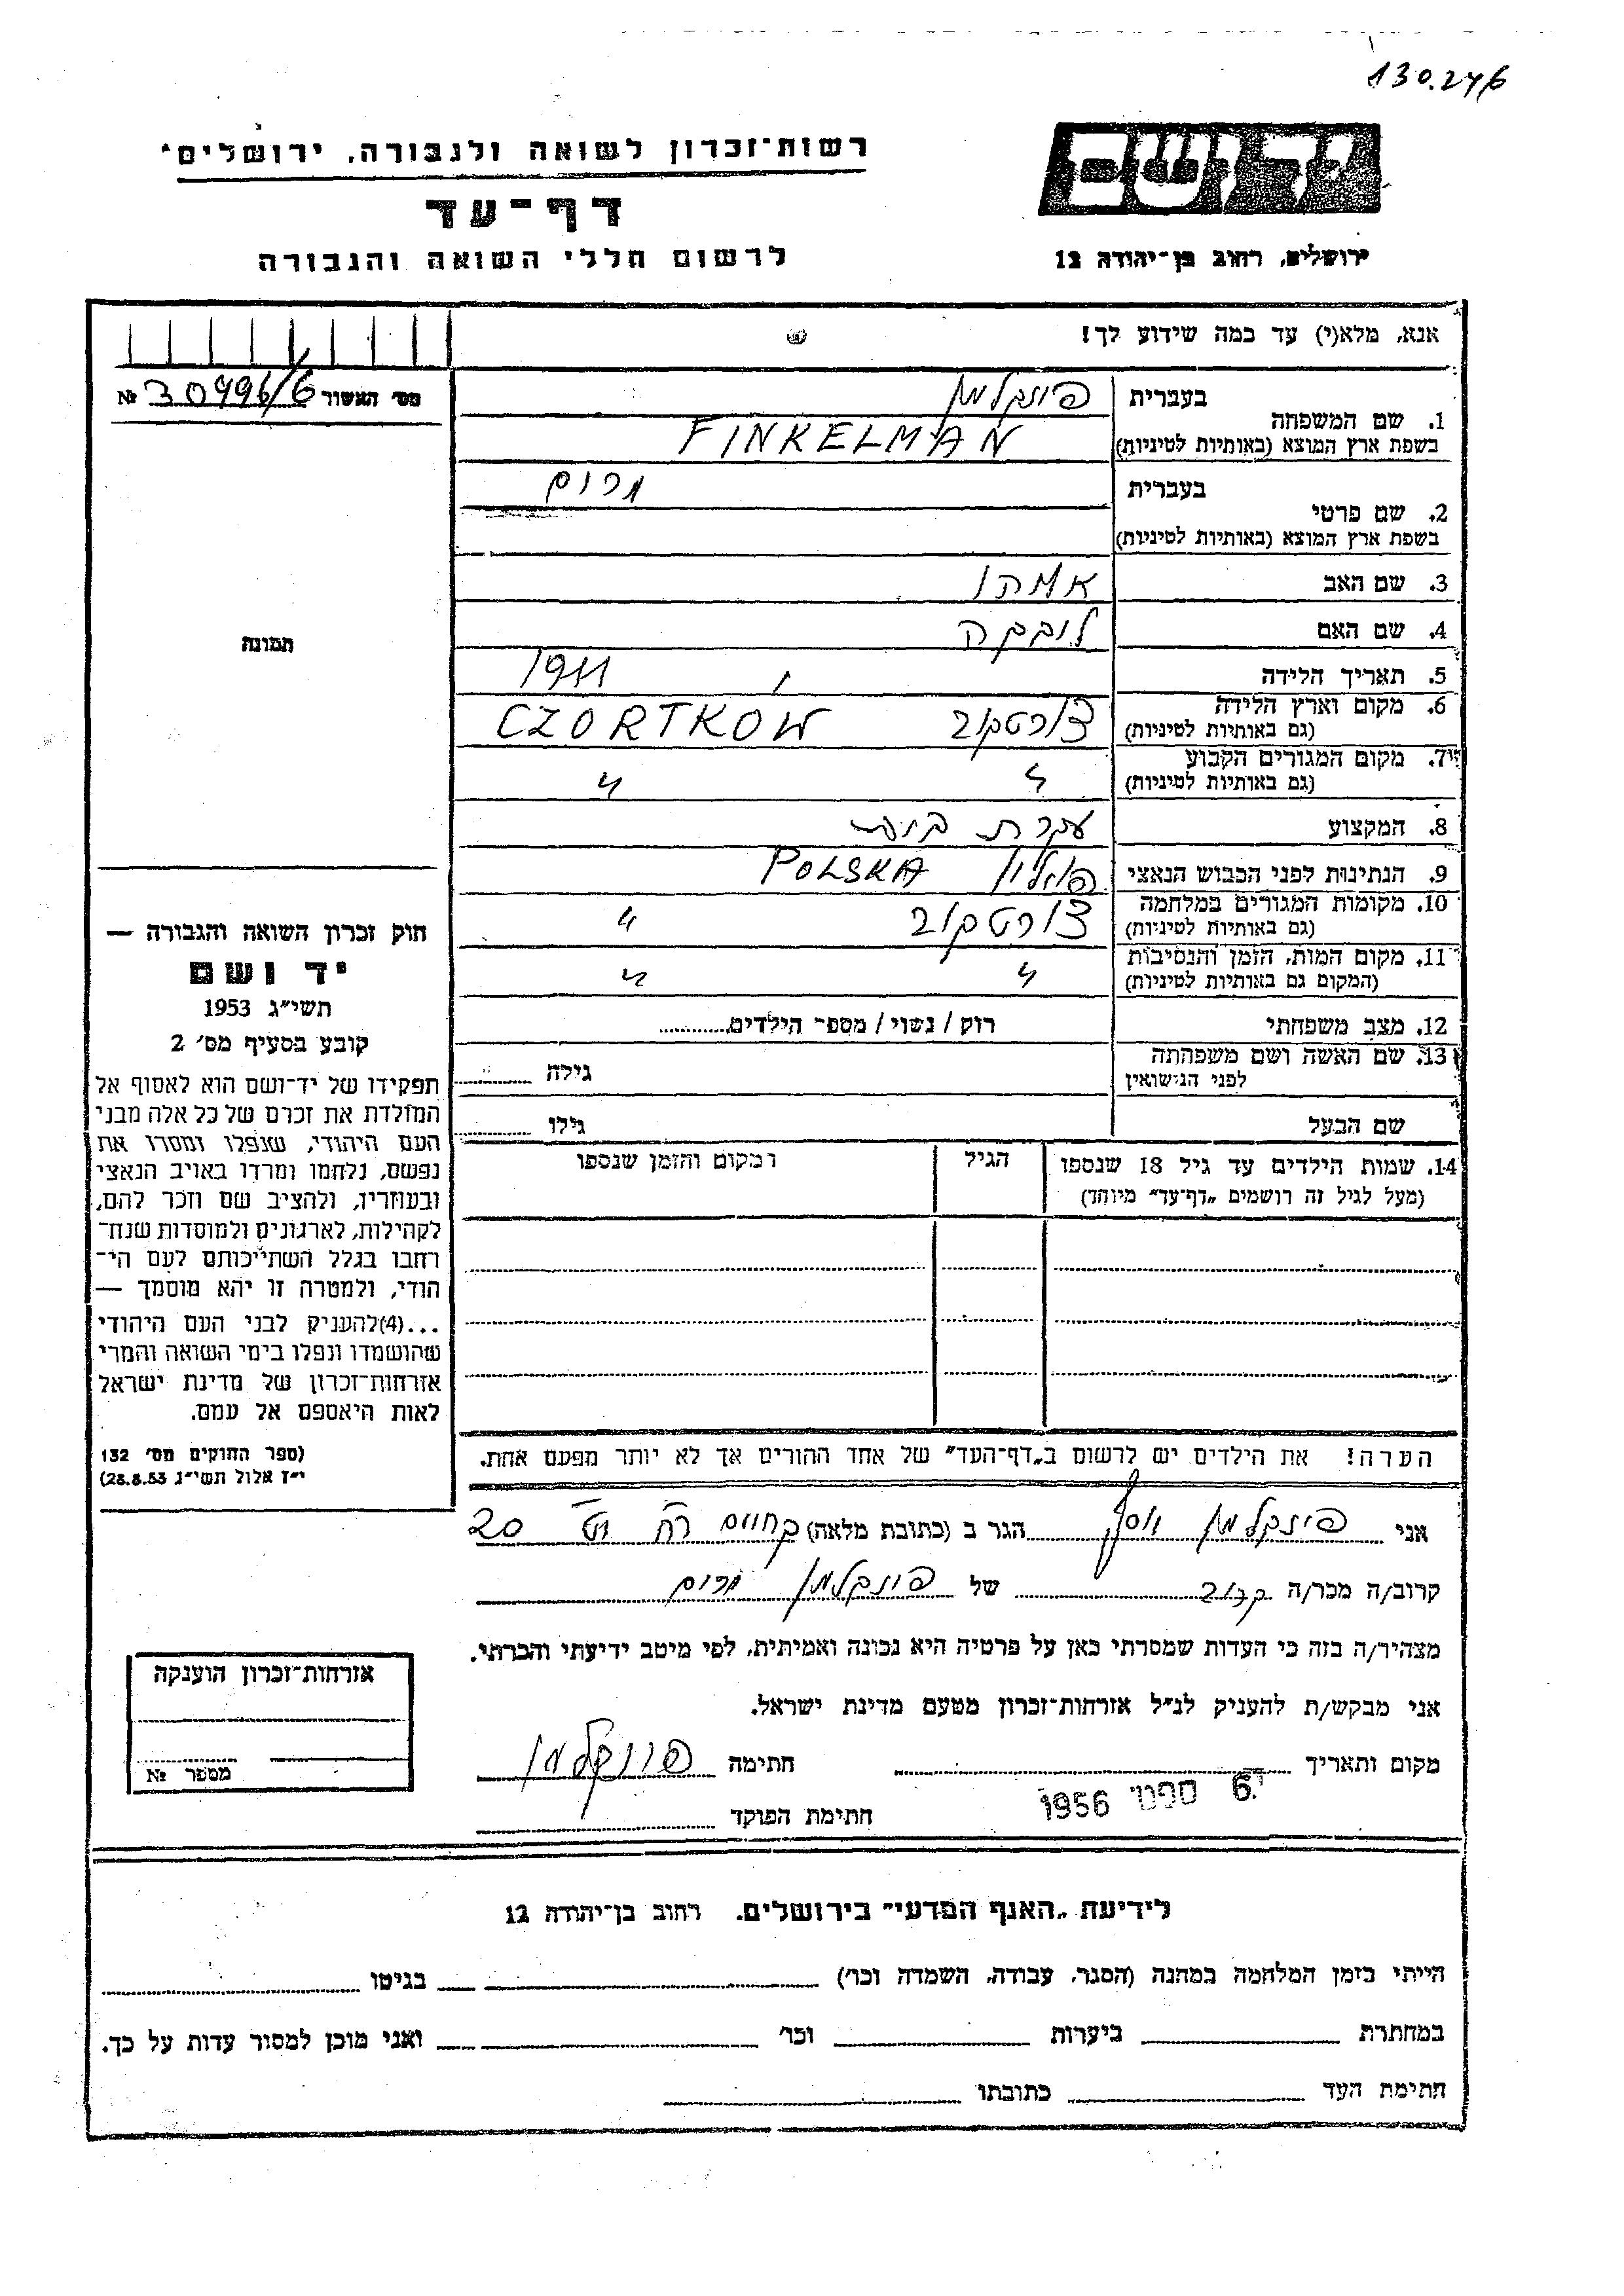 130.246
רשות־זכרון לשואה ולגבורה, ירושלים
דף־עד
לרשום חללי השואה והגבורה
יד ושם
ירושלים, רחוב בן־יהודה 12
אנא, מלא(י) עד כמה שידוע לך!
מס' האשור № 30496/6
1. שם המשפחה
בעברית פינקלמן
בשפת ארץ המוצא (באותיות לטיניות) FINKELMAN
2. שם פרטי
בעברית מרים
בשפת ארץ המוצא (באותיות לטיניות)
3. שם האב
4. שם האם
5. תאריך הלידה 1911
6. מקום וארץ הלידה צורטקוב CZORTKOW
(גם באותיות לטיניות)
7. מקום המגורים הקבוע " "
(גם באותיות לטיניות)
8. המקצוע עקרת בית
9. הנתינות לפני הכבוש הנאצי פולין POLSKA
10. מקומות המגורים במלחמה צורטקוב "
(גם באותיות לטיניות)
11. מקום המות, הזמן והנסיבות " "
(המקום גם באותיות לטיניות)
12. מצב משפחתי רוק / נשוי / מספר הילדים
13. שם האשה ושם משפחתה גילה
לפני הנישואין
שם הבעל גילו
14. שמות הילדים עד גיל 18 שנספו הגיל ומקום והזמן שנספו
(מעל לגיל זה רושמים „דף־עד" מיוחד)
הערה! את הילדים יש לרשום ב„דף־העד" של אחד ההורים אך לא יותר מפעם אחת.
תמונה
חוק זכרון השואה והגבורה —
יד ושם
תשי"ג 1953
קובע בסעיף מס' 2
תפקידו של יד־ושם הוא לאסוף אל
המולדת את זכרם של כל אלה מבני
העם היהודי, שנפלו ומסרו את
נפשם, נלחמו ומרדו באויב הנאצי
ובעוזריו, ולהציב שם וזכר להם,
לקהילות, לארגונים ולמוסדות שנח־
רבו בגלל השתייכותם לעם הי־
הודי, ולמטרה זו יהא מוסמך —
...(4)להעניק לבני העם היהודי
שהושמדו ונפלו בימי השואה והמרי
אזרחות־זכרון של מדינת ישראל
לאות היאספם אל עמם.
(ספר החוקים מס' 132
י"ז אלול תשי"ג 28.8.53)
אני פינקלמן יוסף הגר ב (כתובת מלאה) 20
קרוב/ה מכר/ה קרוב של פינקלמן מרים
מצהיר/ה בזה כי העדות שמסרתי כאן על פרטיה היא נכונה ואמיתית, לפי מיטב ידיעתי והכרתי.
אני מבקש/ת להעניק לנ"ל אזרחות־זכרון מטעם מדינת ישראל.
מקום ותאריך חתימה פינקלמן
6. ספט' 1956
חתימת הפוקד
אזרחות־זכרון הוענקה
מספר №
לידיעת „האגף המדעי" בירושלים. רחוב בן־יהודה 12
הייתי בזמן המלחמה במחנה (הסגר, עבודה, השמדה וכו') בגיטו
במחתרת ביערות וכו' ואני מוכן למסור עדות על כך.
חתימת העד כתובתו